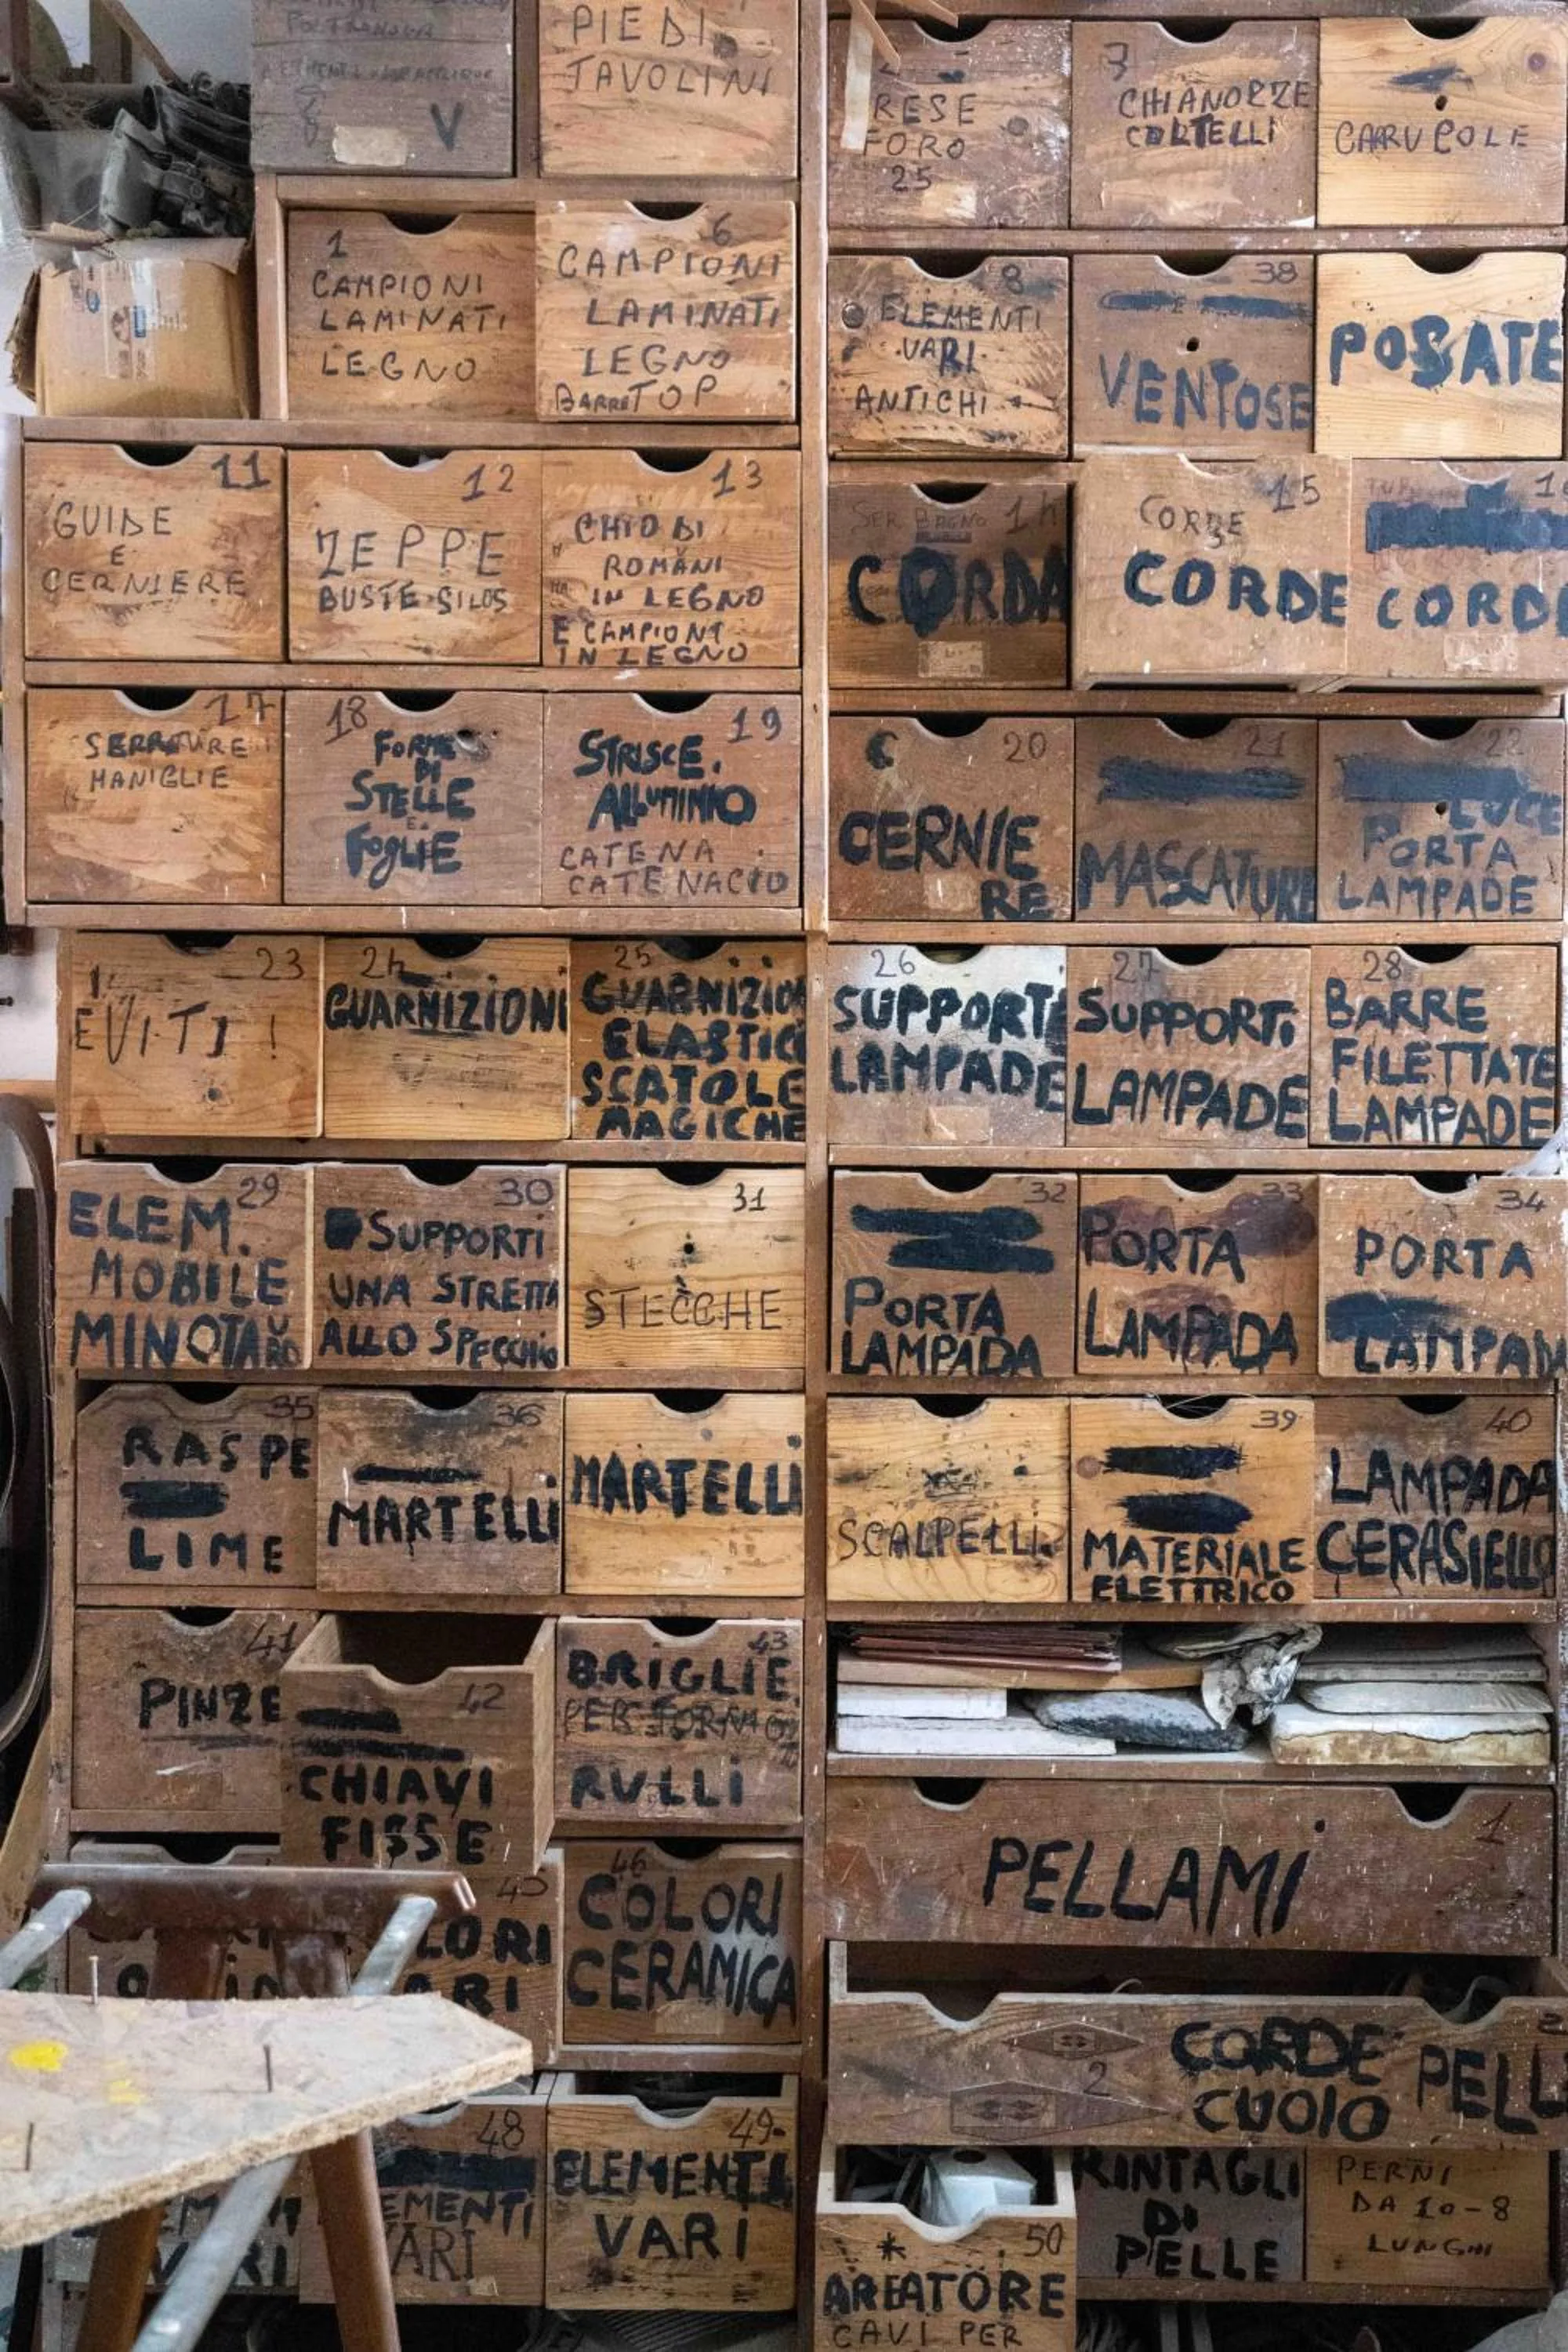 V
PIEDI
TAVOLINI
RESE
FORO
25
3
CHIANOZZE
COLTELLI
CARRUCOLE
1
CAMPIONI
LAMINATI
LEGNO
6
CAMPIONI
LAMINATI
LEGNO
BARRE TOP
8
ELEMENTI
VARI
ANTICHI
38
VENTOSE
POSATE
11
GUIDE
E
CERNIERE
12
ZEPPE
BUSTE SILOS
13
CHIODI
ROMANI
IN LEGNO
E CAMPIONI
IN LEGNO
SER BAGNO 14
CORDA
15
CORDE
CORDE
CORD
17
SERRATURE
MANIGLIE
18
FORME
DI
STELLE
E
FOGLIE
19
STRISCE.
ALLUMINIO
CATENA
CATENACCIO
20
CERNIE
RE
21
MASCATURE
22
LUCE
PORTA
LAMPADE
23
EVITI!
24
GUARNIZIONI
25
GUARNIZION
ELASTICI
SCATOLE
MAGICHE
26
SUPPORTI
LAMPADE
27
SUPPORTI
LAMPADE
28
BARRE
FILETTATE
LAMPADE
29
ELEM.
MOBILE
MINOTAURO
30
SUPPORTI
UNA STRETTA
ALLO SPECCHIO
31
STECCHE
32
PORTA
LAMPADA
33
PORTA
LAMPADA
34
PORTA
LAMPAD
35
RASPE
LIME
36
MARTELLI
MARTELLI
SCALPELLI
39
MATERIALE
ELETTRICO
40
LAMPADA
CERASIELLO
41
PINZE
42
CHIAVI
FISSE
43
BRIGLIE
PER FORNO
RULLI
1
PELLAMI
45
LORI
ARI
46
COLORI
CERAMICA
2
CORDE
CUOIO
PELL
VARI
48
EMENTI
VARI
49
ELEMENTI
VARI
50
*
AREATORE
CAVI PER
RINTAGLI
DI
PELLE
PERNI
DA 10-8
LUNGHI